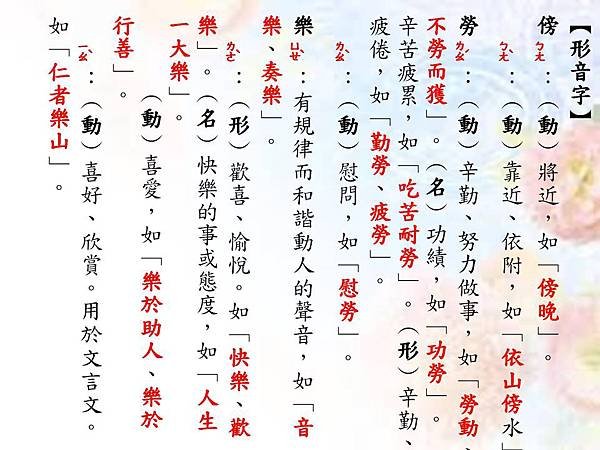 【形音字】
傍ㄅㄤ：（動）將近，如「傍晚」。
ㄅㄤˋ：（動）靠近、依附，如「依山傍水」
勞ㄌㄠˊ：（動）辛勤、努力做事，如「勞動、
不勞而獲」。（名）功績，如「功勞」。
辛苦疲累，如「吃苦耐勞」。（形）辛勤、
疲倦，如「勤勞、疲勞」。
ㄌㄠˋ：（動）慰問，如「慰勞」。
樂ㄩㄝˋ：有規律而和諧動人的聲音，如「音
樂、奏樂」。
ㄌㄜˋ：（形）歡喜、愉悅。如「快樂、歡
樂」。（名）快樂的事或態度，如「人生
一大樂」。
（動）喜愛，如「樂於助人、樂於
行善」。
ㄧㄠˋ：（動）喜好、欣賞。用於文言文。
如「仁者樂山」。